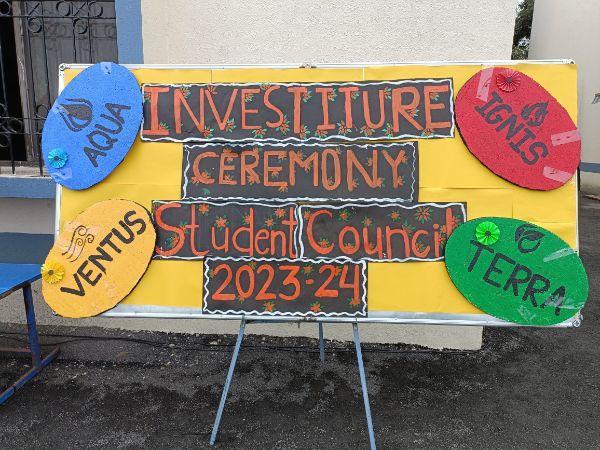 INVESTITURE
CEREMONY
Student Council
2023-24
AQUA
IGNIS
VENTUS
TERRA